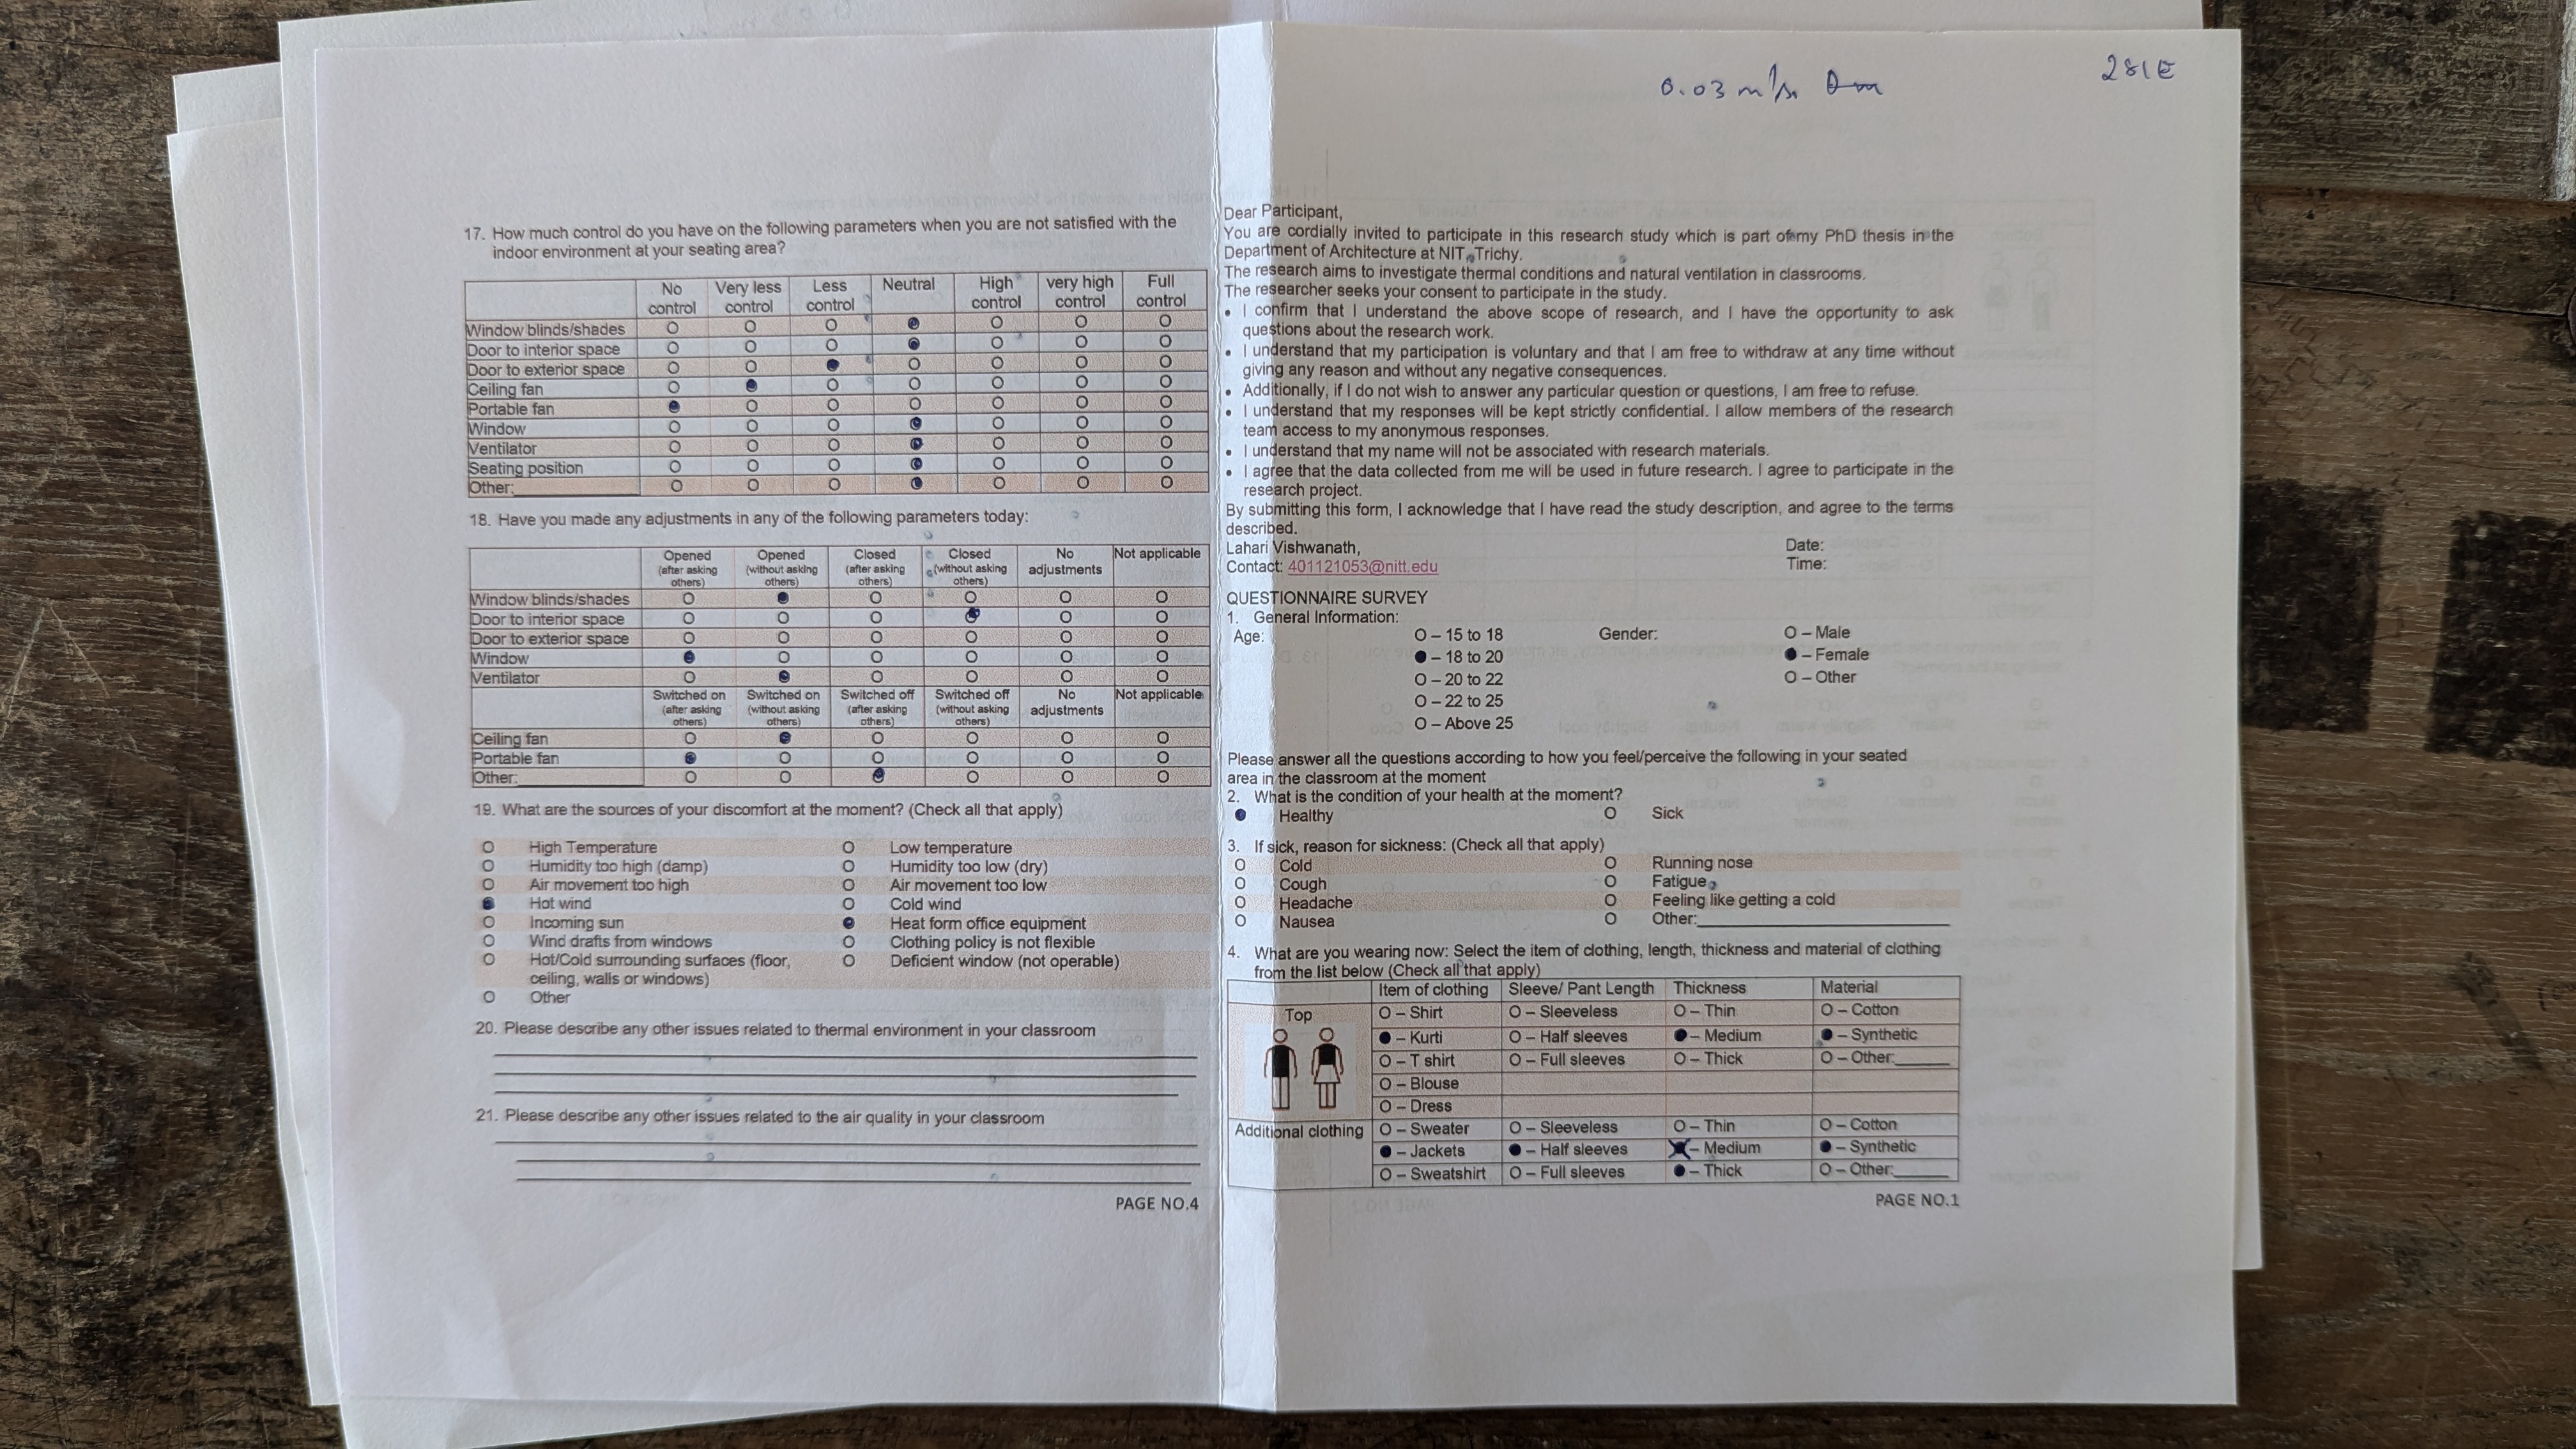 17. How much control do you have on the following parameters when you are not satisfied with the
indoor environment at your seating area?
No control Very less control Less control Neutral High control very high control Full control
Window blinds/shades O O O ● O O O
Door to interior space O O O ● O O O
Door to exterior space O O ● O O O O
Ceiling fan O ● O O O O O
Portable fan ● O O O O O O
Window O O O ● O O O
Ventilator O O O ● O O O
Seating position O O O ● O O O
Other:________ O O O ● O O O
18. Have you made any adjustments in any of the following parameters today:
Opened (after asking others) Opened (without asking others) Closed (after asking others) Closed (without asking others) No adjustments Not applicable
Window blinds/shades O ● O O O O
Door to interior space O O O ● O O
Door to exterior space O O O O O O
Window ● O O O O O
Ventilator O ● O O O O
Switched on (after asking others) Switched on (without asking others) Switched off (after asking others) Switched off (without asking others) No adjustments Not applicable
Ceiling fan O ● O O O O
Portable fan ● O O O O O
Other:________ O O ● O O O
19. What are the sources of your discomfort at the moment? (Check all that apply)
O High Temperature O Low temperature
O Humidity too high (damp) O Humidity too low (dry)
O Air movement too high O Air movement too low
● Hot wind O Cold wind
O Incoming sun ● Heat form office equipment
O Wind drafts from windows O Clothing policy is not flexible
O Hot/Cold surrounding surfaces (floor, O Deficient window (not operable)
ceiling, walls or windows)
O Other
20. Please describe any other issues related to thermal environment in your classroom
21. Please describe any other issues related to the air quality in your classroom
PAGE NO.4
281E
0.03 m/s
Dear Participant,
You are cordially invited to participate in this research study which is part of my PhD thesis in the
Department of Architecture at NIT, Trichy.
The research aims to investigate thermal conditions and natural ventilation in classrooms.
The researcher seeks your consent to participate in the study.
• I confirm that I understand the above scope of research, and I have the opportunity to ask
questions about the research work.
• I understand that my participation is voluntary and that I am free to withdraw at any time without
giving any reason and without any negative consequences.
• Additionally, if I do not wish to answer any particular question or questions, I am free to refuse.
• I understand that my responses will be kept strictly confidential. I allow members of the research
team access to my anonymous responses.
• I understand that my name will not be associated with research materials.
• I agree that the data collected from me will be used in future research. I agree to participate in the
research project.
By submitting this form, I acknowledge that I have read the study description, and agree to the terms
described.
Lahari Vishwanath, Date:
Contact: 401121053@nitt.edu Time:
QUESTIONNAIRE SURVEY
1. General Information:
Age: O – 15 to 18 Gender: O – Male
● – 18 to 20 ● – Female
O – 20 to 22 O – Other
O – 22 to 25
O – Above 25
Please answer all the questions according to how you feel/perceive the following in your seated
area in the classroom at the moment
2. What is the condition of your health at the moment?
● Healthy O Sick
3. If sick, reason for sickness: (Check all that apply)
O Cold O Running nose
O Cough O Fatigue
O Headache O Feeling like getting a cold
O Nausea O Other:________
4. What are you wearing now: Select the item of clothing, length, thickness and material of clothing
from the list below (Check all that apply)
Item of clothing Sleeve/ Pant Length Thickness Material
Top O – Shirt O – Sleeveless O – Thin O – Cotton
● – Kurti O – Half sleeves ● – Medium ● – Synthetic
O – T shirt O – Full sleeves O – Thick O – Other:______
O – Blouse
O – Dress
Additional clothing O – Sweater O – Sleeveless O – Thin O – Cotton
● – Jackets ● – Half sleeves ● – Medium ● – Synthetic
O – Sweatshirt O – Full sleeves ● – Thick O – Other:______
PAGE NO.1